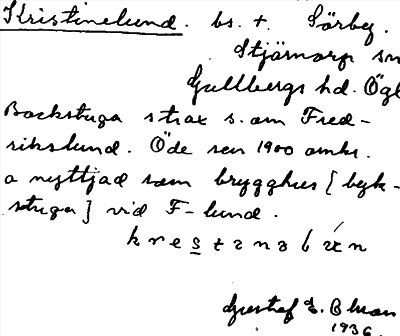 Kristinelund. bs. t. Sörby.
Stjärnorp sn
Gullbergs hd. Ögl
Backstuga strax s. om Fred-
rikslund. Öde sen 1900 omkr.
o nyttjad som brygghus [byk-
stuga] vid F-lund.
Gustaf E. Bluan
1936.